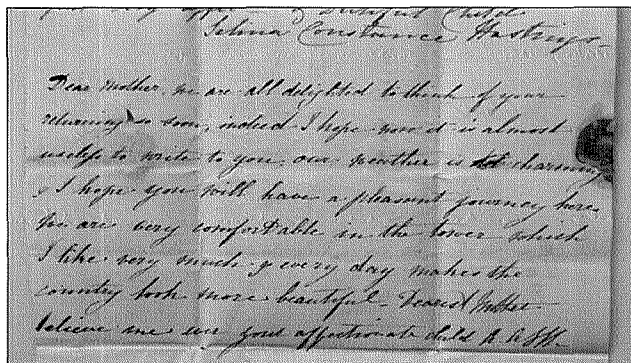 Dutiful Child
Selina Constance Hastings
Dear Mother, we are all delighted to think of your
returning so soon, indeed I hope now it is almost
useless to write to you, our weather is charming
& I hope you will have a pleasant journey here
We are very comfortable in the tower which
I like very much & every day makes the
country look more beautiful - Dearest Mother
believe me your affectionate child